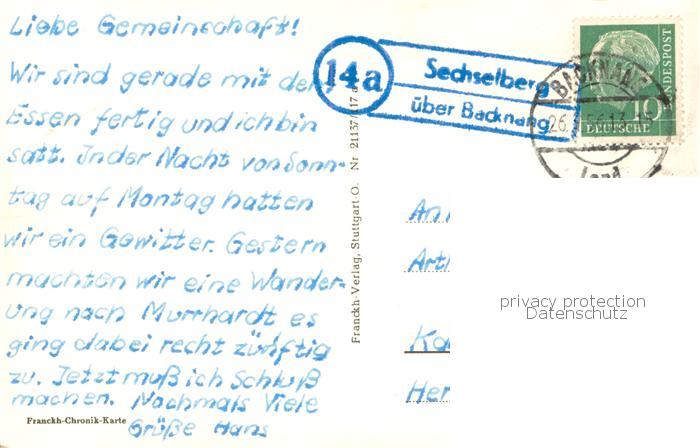 Liebe Gemeinschaft!
Wir sind gerade mit dem
Essen fertig und ich bin
satt. In der Nacht von Sonn-
tag auf Montag hatten
wir ein Gewitter. Gestern
machten wir eine Wander-
ung nach Murrhardt es
ging dabei recht zünftig
zu. Jetzt muß ich Schluß
machen. Nochmals Viele
Grüße Hans
Franckh-Chronik-Karte
Franckh-Verlag, Stuttgart-O. Nr 21137/117 a
14a
Sechselberg
über Backnang
BACKNANG
26.
Land
DEUTSCHE
BUNDESPOST
10
privacy protection
Datenschutz